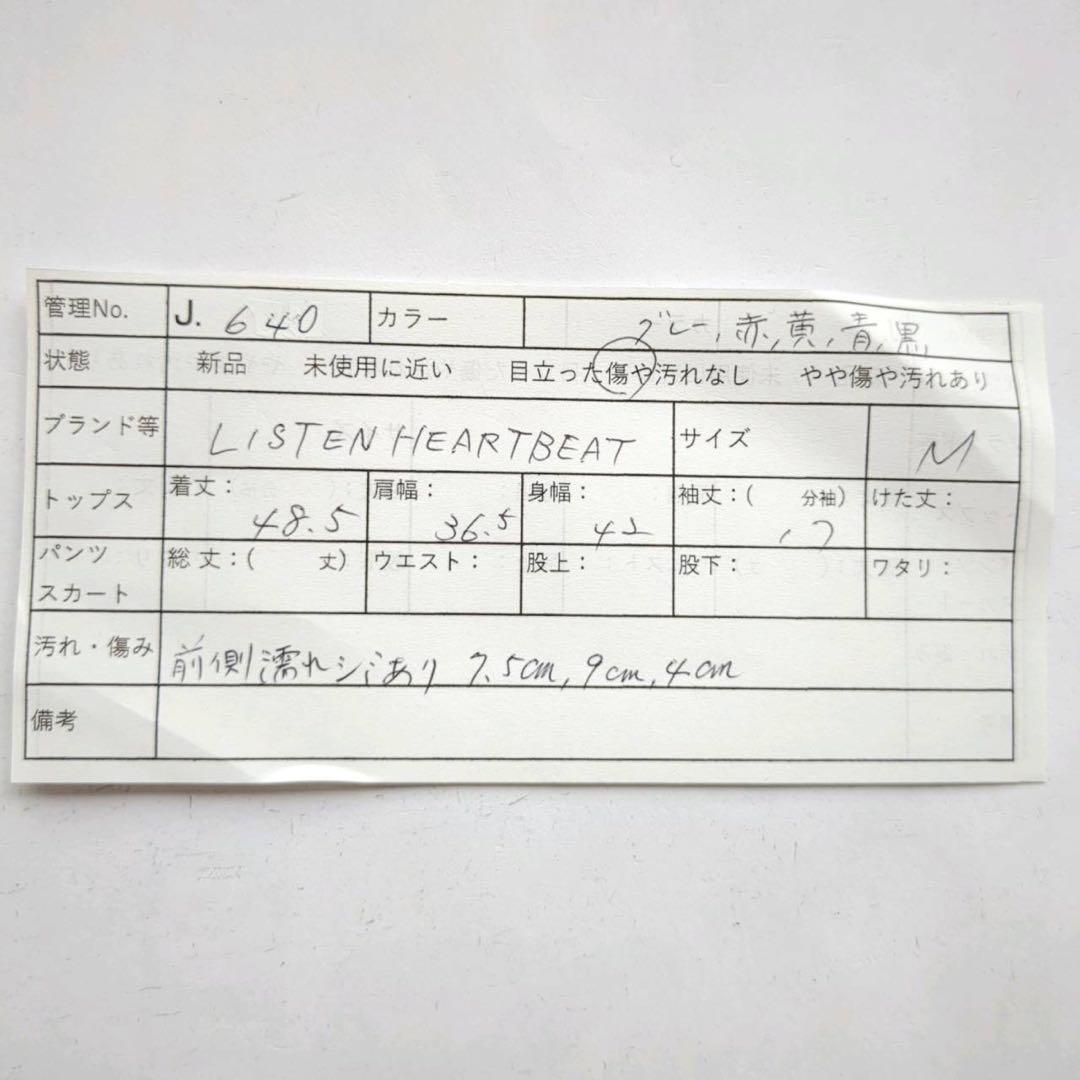 管理No. J. 640 カラー グレー, 赤, 黄, 青, 黒
状態 新品 未使用に近い 目立った傷や汚れなし やや傷や汚れあり
ブランド等 LISTEN HEARTBEAT サイズ M
トップス 着丈: 48.5 肩幅: 36.5 身幅: 42 袖丈:( 分袖) 17 けた丈:
パンツ 総丈:( 丈) ウエスト: 股上: 股下: ワタリ:
スカート
汚れ・傷み 前側濡れシミあり 7.5cm, 9cm, 4cm
備考